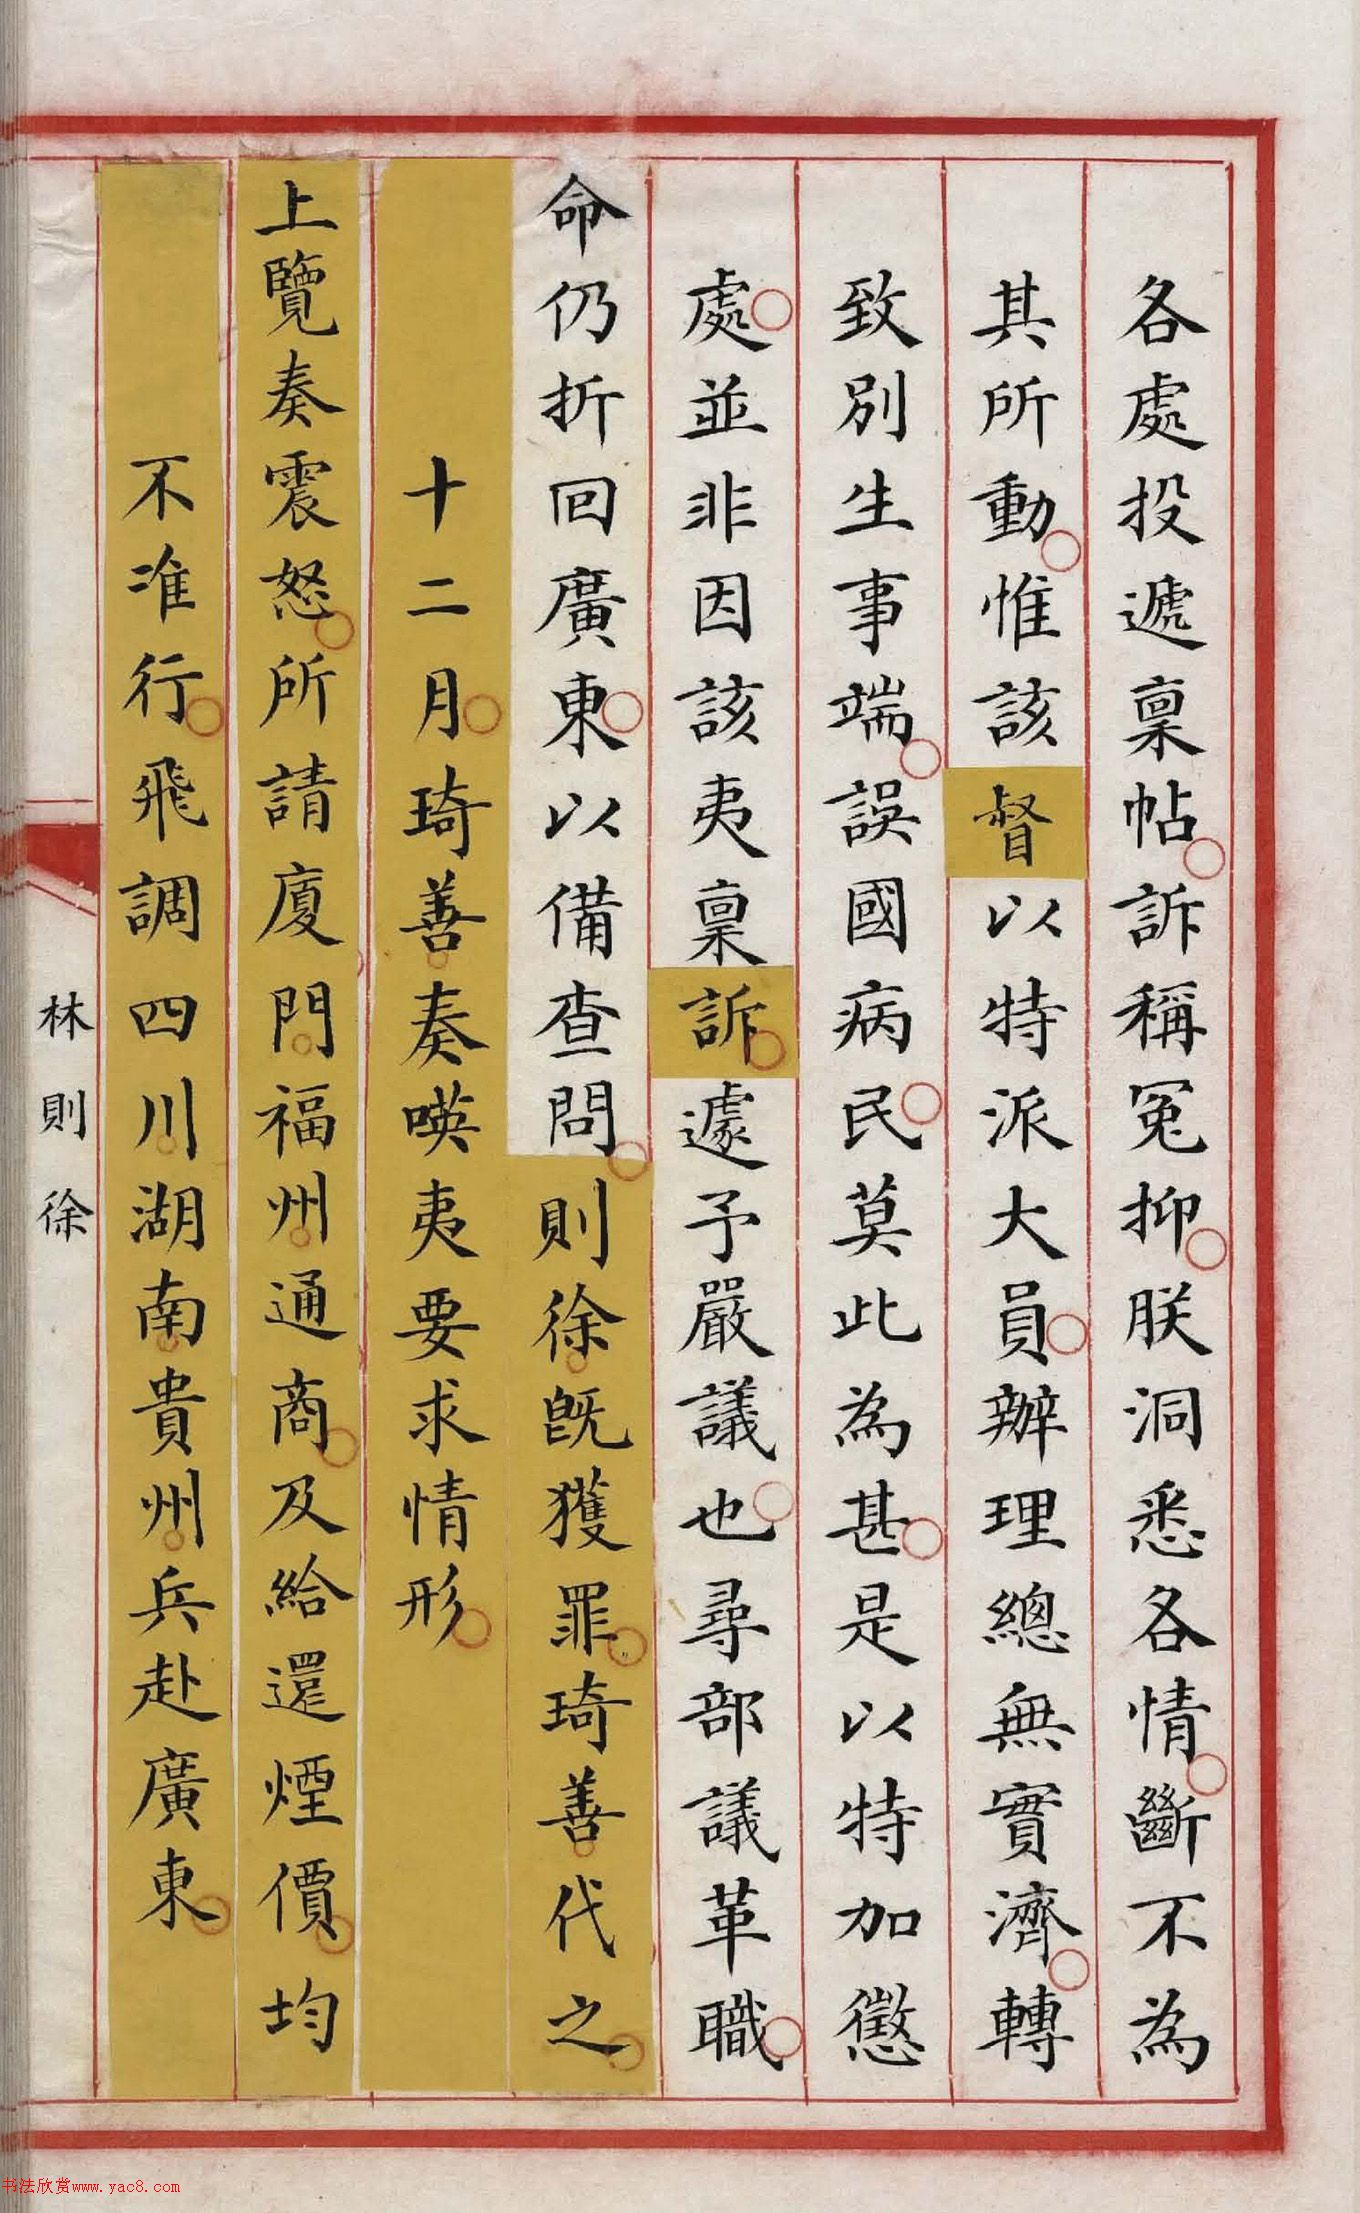 各處投遞稟帖訴稱冤抑朕洞悉各情斷不為
其所動惟該督以特派大員辦理總無實濟轉
致別生事端誤國病民莫此為甚是以特加懲
處並非因該夷稟訴遽予嚴議也尋部議革職
命仍折回廣東以備查問則徐旣獲罪琦善代之
十二月琦善奏暎夷要求情形
上覽奏震怒所請廈門福州通商及給還煙價均
不准行飛調四川湖南貴州兵赴廣東
林則徐
书法欣赏www.yac8.com